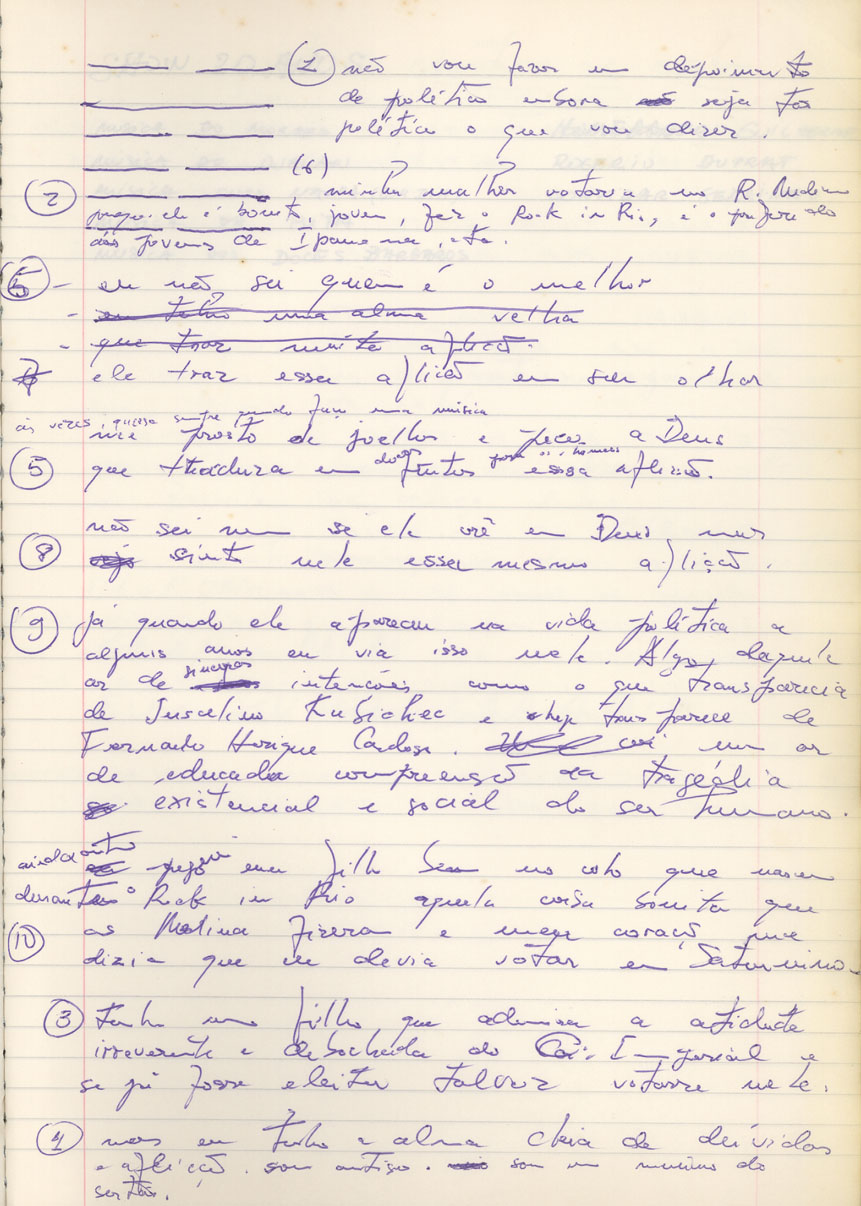 (1) não vou fazer um depoimento
de política embora seja tão
política o que vou dizer.
(6)
(2) minha mulher votaria no R. Medina
porque ele é bonito, jovem, fez o Rock in Rio, é o preferido
dos jovens de Ipanema, etc.
(6) - eu não sei quem é o melhor
- eu tenho uma alma velha
- que traz muita aflição.
7 ele traz essa aflição em seu olhar
às vezes, quase sempre quando faço uma música
me prosto de joelhos e peço a Deus
(5) que traduza em frutos para os homens essa aflição.
não sei nem se ele crê em Deus, mas
(8) sinto nele essa mesma aflição.
(9) já quando ele apareceu na vida política a
alguns anos eu via isso nele. Algo daquele
ar de sinceras intenções como o que transparecia
de Juscelino Kubichec e hoje transparece de
Fernando Henrique Cardoso. um ar
de educada compreensão da tragédia
existencial e social do ser humano.
ainda ontem
peguei meu filho Ben no colo que nasceu
durante o Rock in Rio aquela coisa bonita que
(10) os Medina fizeram e meu coração me
dizia que eu devia votar em Saturnino.
(3) tenho um filho que admira a atitude
irreverente e debochada do Carlos Imperial e
se já fosse eleitor talvez votasse nele.
(4) mas eu tenho a alma cheia de dúvidas
e aflição. sou antigo. sou um menino do
sertão.